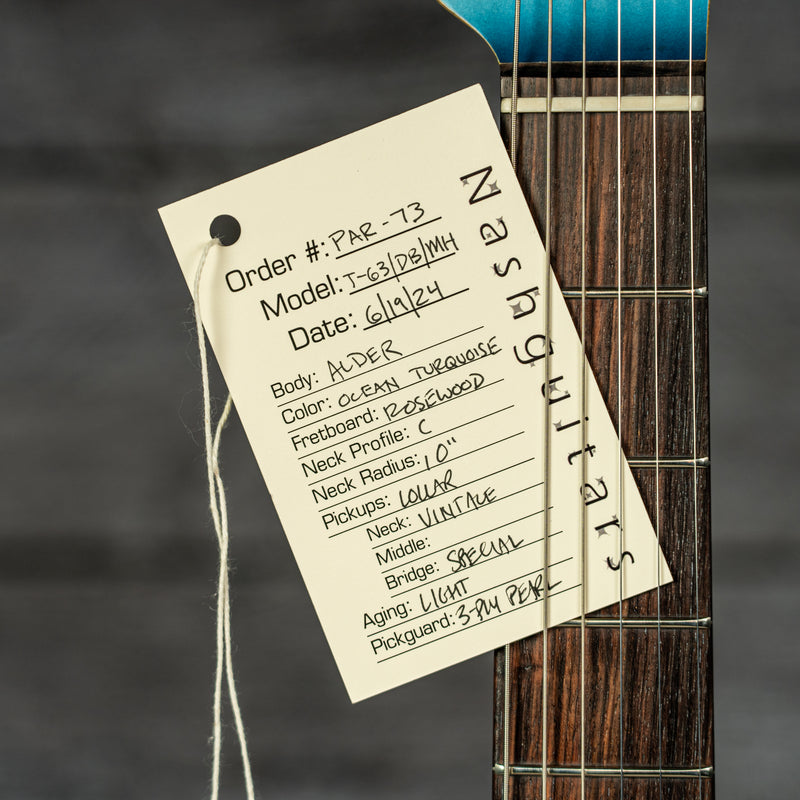 Nashguitars
Order #: PAR-73
Model: T-63/DB/MH
Date: 6/19/24
Body: ALDER
Color: OCEAN TURQUOISE
Fretboard: ROSEWOOD
Neck Profile: C
Neck Radius: 10"
Pickups: LOLLAR
Neck: VINTAGE
Middle:
Bridge: SPECIAL
Aging: LIGHT
Pickguard: 3-PLY PEARL